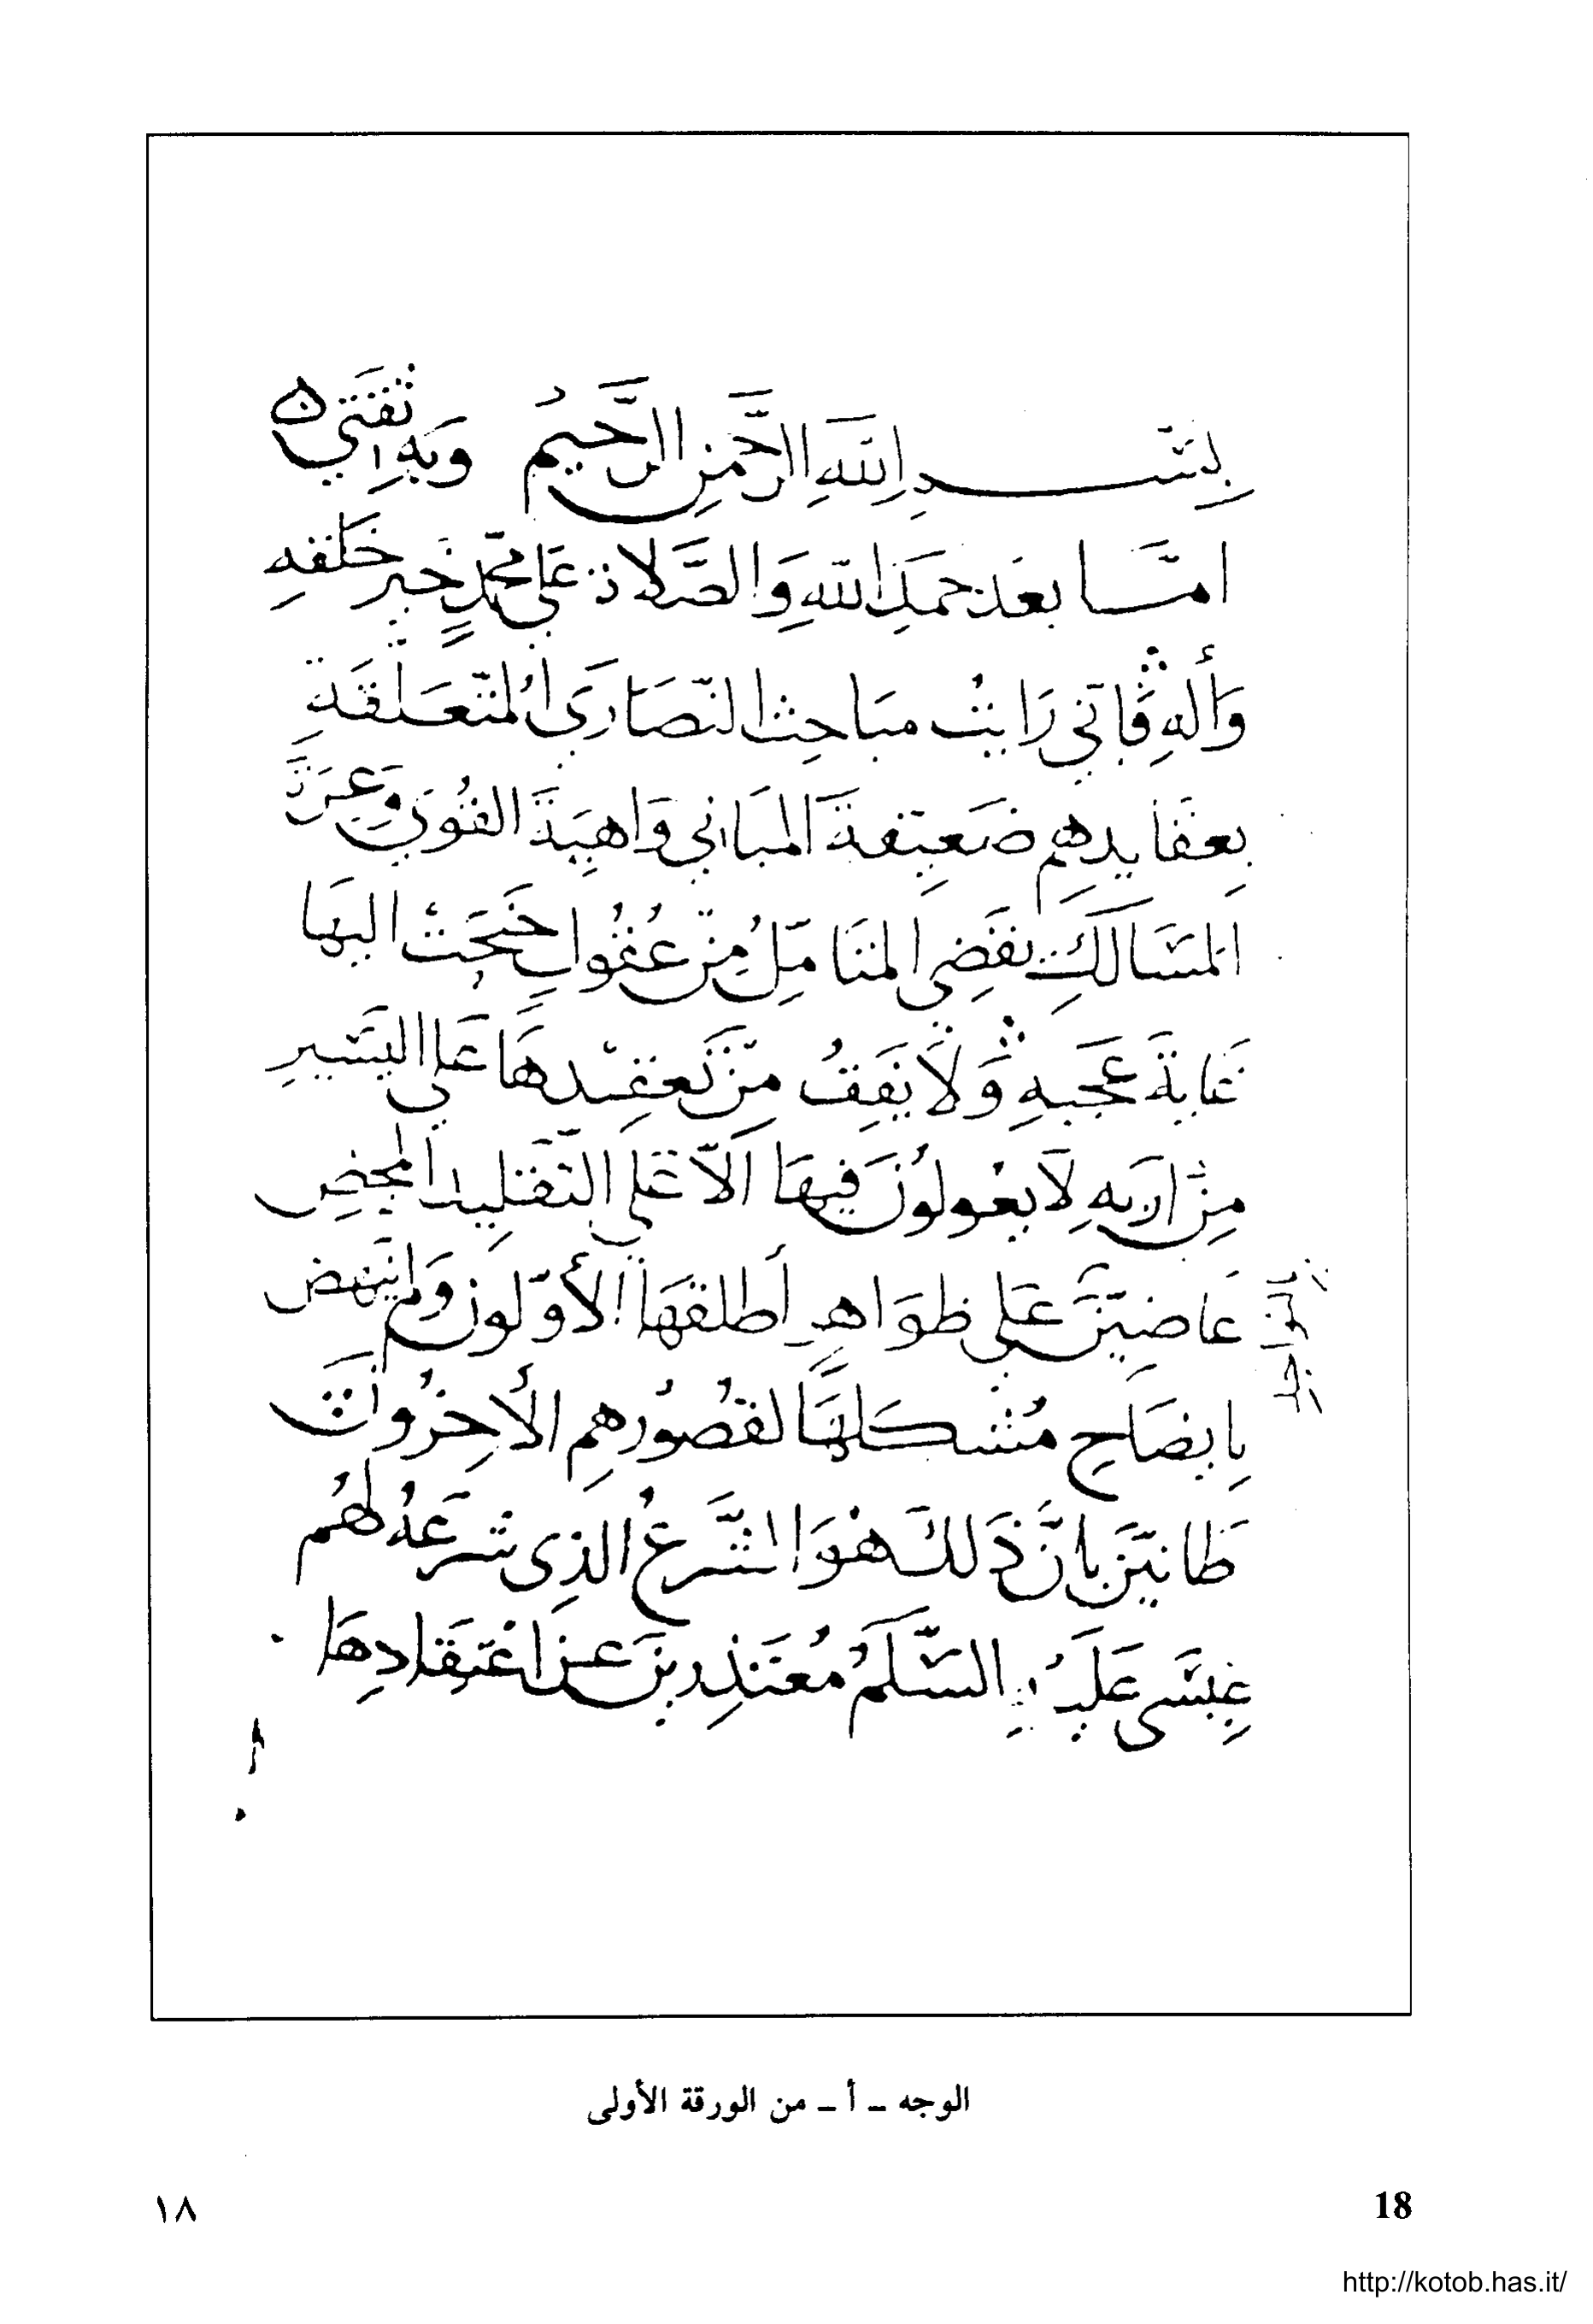 بِسْمِ اللَّهِ الرَّحْمَنِ الرَّحِيمُ وَبِهِ ثِقَتي
امّا بعَد حمَدِ اللهِ وَالصَّلاة عَلى محمّدٍ خَير خَلقهِ
وَألهِ فَاني رَايتُ مبَاحِث النّصَارَى المُتعَلّقَة
بِعقَايدهِم ضَعِيفةَ المبَاني وَاهيَةَ القُوَى وَعِرَةَ
المسَالكِ يقضِى المتَامّلُ مِنْ عُقُولٍ جَنحَتْ اليهَا
غَايةَ عَجَبهِ وَلَا يَقِفُ مِنْ تَعقِيْدهَا عَلى اليَسيرِ
مِنْ ارَبهِ لَا يعْولوُنَ فيهَا الّا عَلى التّقلِيد المحْضِ
عَاضيّنَ عَلى ظوَاهرِ أطلقهَا الأوّلون وَلم يَنهض
بِايضَاحِ مُشكَلهَا لقصُورُهمِ الأخِرُونَ
ظانيّنَ بانَّ ذَلكَ هْوَ الشَّرعُ الذِى شرَعَهُ لهُم
عِيسَى عَلَيهِ السَّلَمُ مُعتَذِرينَ عنِ اعْتِقَادِهَا
الوجه – أ – من الورقة الأولى
١٨ 18
http://kotob.has.it/